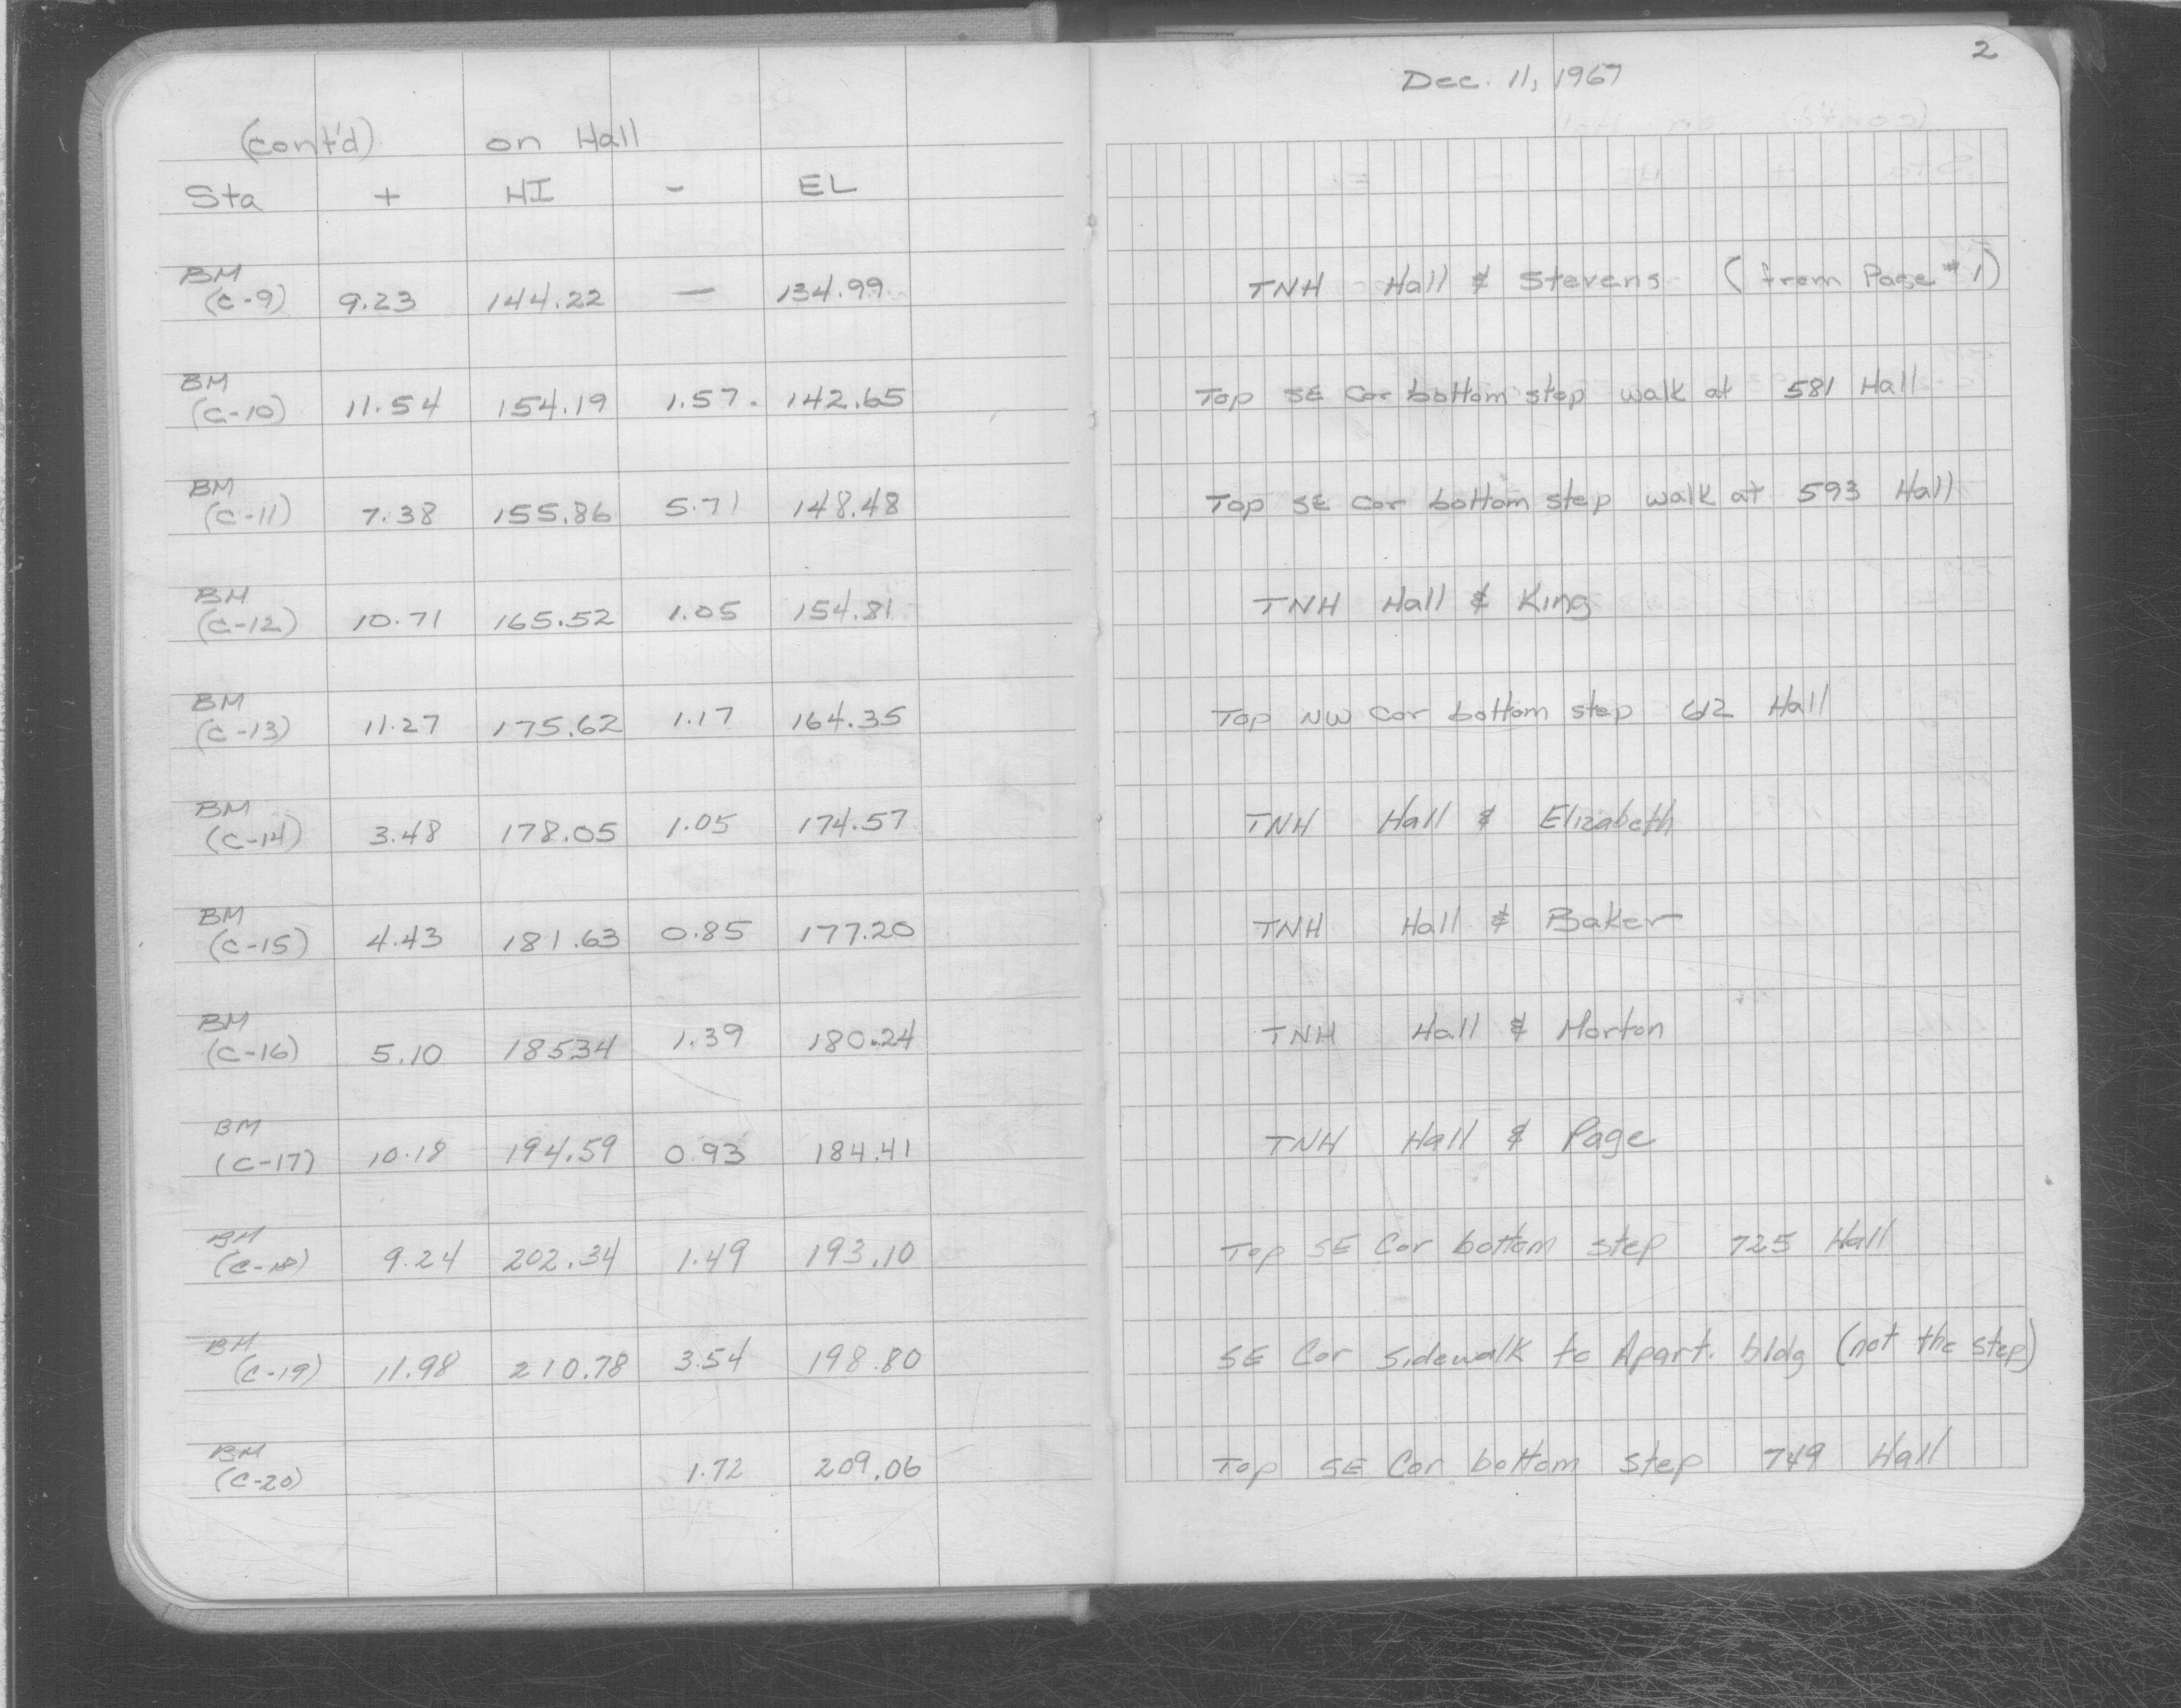 2
Dec. 11, 1967
(cont'd) on Hall
Sta + HI - EL
BM
(C-9) 9.23 144.22 — 134.99 TNH Hall & Stevens (from Page #1)
BM
(C-10) 11.54 154.19 1.57 142.65 Top SE Cor bottom step walk at 581 Hall
BM
(C-11) 7.38 155.86 5.71 148.48 Top SE Cor bottom step walk at 593 Hall
BM
(C-12) 10.71 165.52 1.05 154.81 TNH Hall & King
BM
(C-13) 11.27 175.62 1.17 164.35 Top NW Cor bottom step 612 Hall
BM
(C-14) 3.48 178.05 1.05 174.57 TNH Hall & Elizabeth
BM
(C-15) 4.43 181.63 0.85 177.20 TNH Hall & Baker
BM
(C-16) 5.10 185.34 1.39 180.24 TNH Hall & Morton
BM
(C-17) 10.18 194.59 0.93 184.41 TNH Hall & Page
BM
(C-18) 9.24 202.34 1.49 193.10 Top SE Cor bottom step 725 Hall
BM
(C-19) 11.98 210.78 3.54 198.80 SE Cor Sidewalk to Apart. bldg (not the step)
BM
(C-20) 1.72 209.06 Top SE Cor bottom step 749 Hall